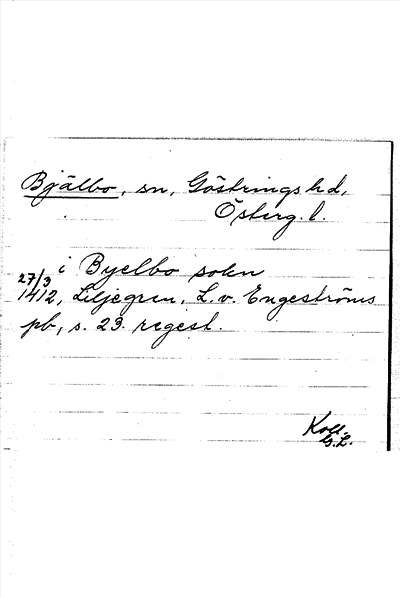 Bjälbo, sn, Göstrings hd,
Österg. l.
i Byelbo sokn
27/3 1412, Liljegren, L. v. Engeströms
pb, s. 23. regest.
Koll.
G. L.